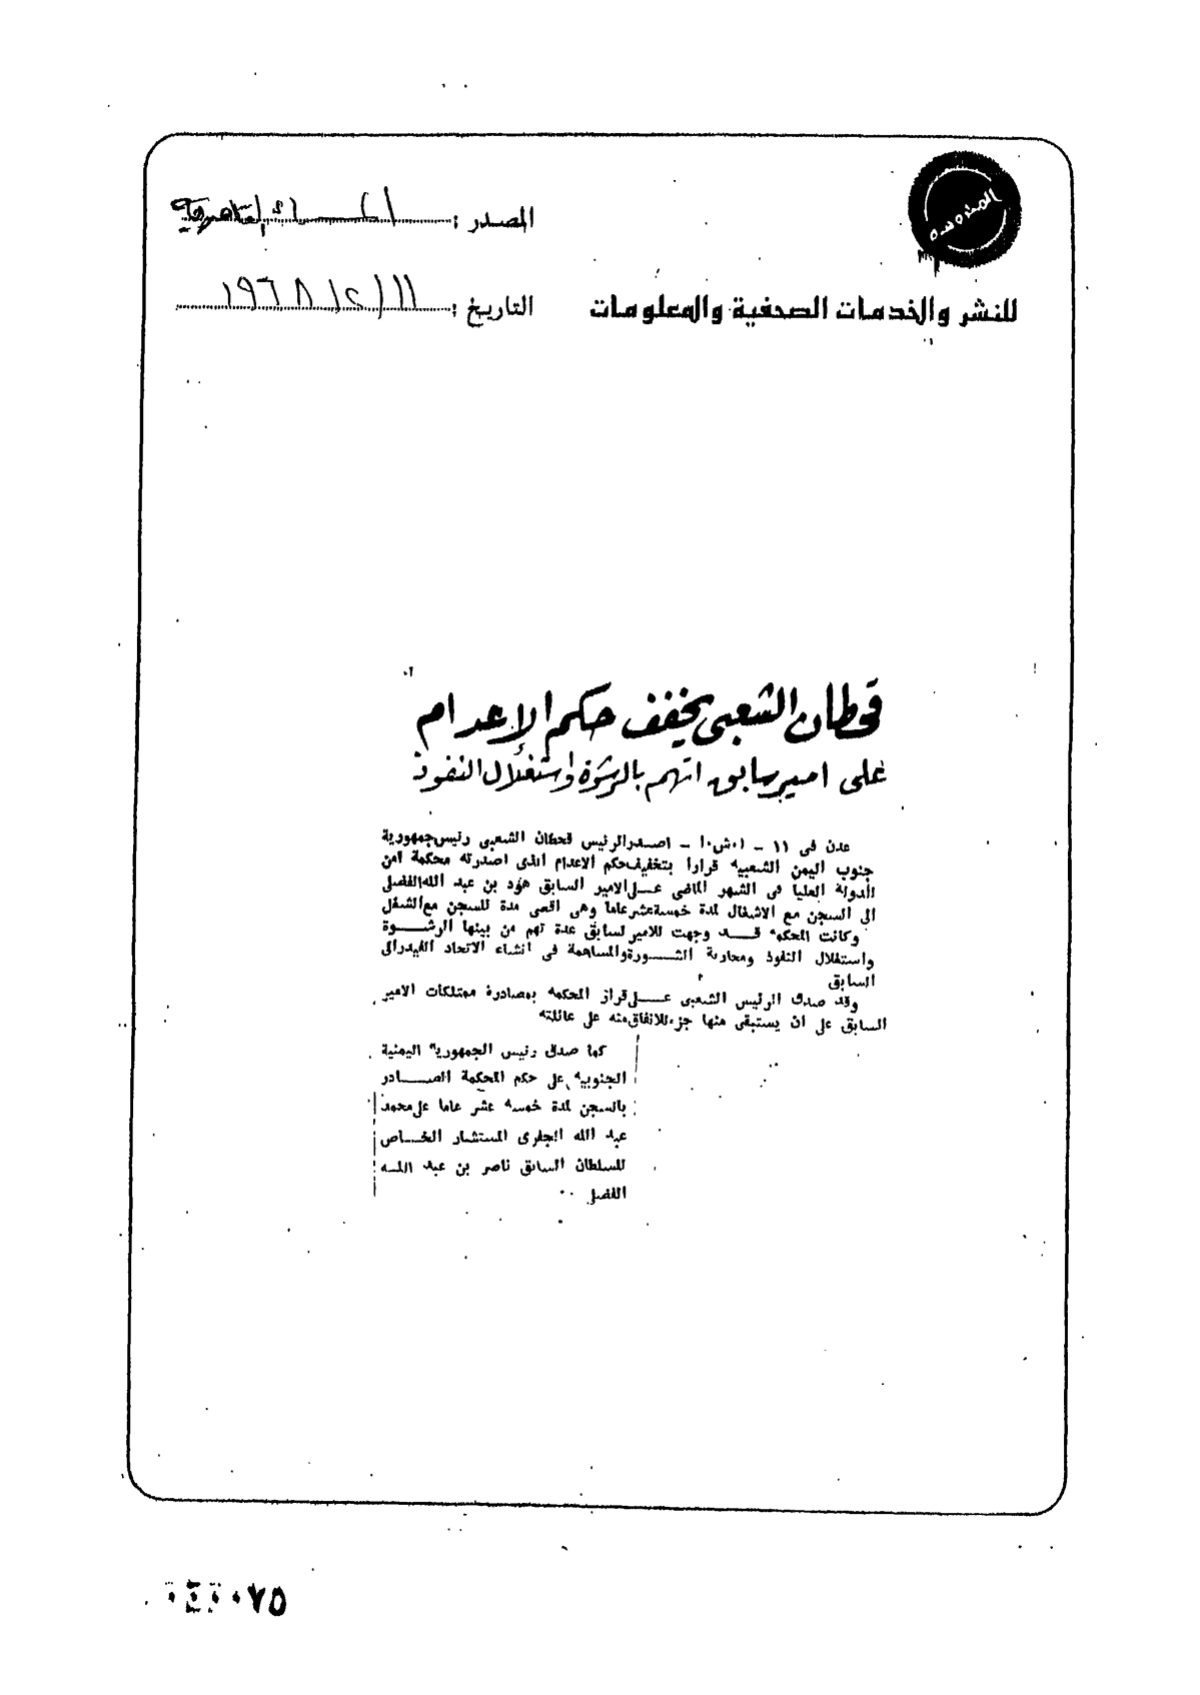 المحروسة
للنشر والخدمات الصحفية والمعلومات
المصدر :
التاريخ : ١١/٢/١٩٦٨
قحطان الشعبى يخفف حكم الإعدام
على امير سابق اتهم بالرشوة واستغلال النفوذ
عدن فى ١١ - ا.ش.ا - اصدر الرئيس قحطان الشعبى رئيس جمهورية
جنوب اليمن الشعبية قرارا بتخفيف حكم الاعدام الذى اصدرته محكمة امن
الدولة العليا فى الشهر الماضى على الامير السابق هود بن عبد الله الفضلى
الى السجن مع الاشغال لمدة خمسة عشر عاما وهى اقصى مدة للسجن مع الشغل
وكانت المحكمة قد وجهت للامير لسابق عدة تهم من بينها الرشوة
واستغلال النفوذ ومحاربة الشورة والمساهمة فى انشاء الاتحاد الفيدرالى
السابق
وقد صدق الرئيس الشعبى على قرار المحكمة بمصادرة ممتلكات الامير
السابق على ان يستبقى منها جزء للانفاق منه على عائلته
كما صدق رئيس الجمهورية اليمنية
الجنوبية على حكم المحكمة الصادر
بالسجن لمدة خمسة عشر عاما على محمد
عبد الله الجفرى المستشار الخاص
للسلطان السابق ناصر بن عبد الله
الفضلى ..